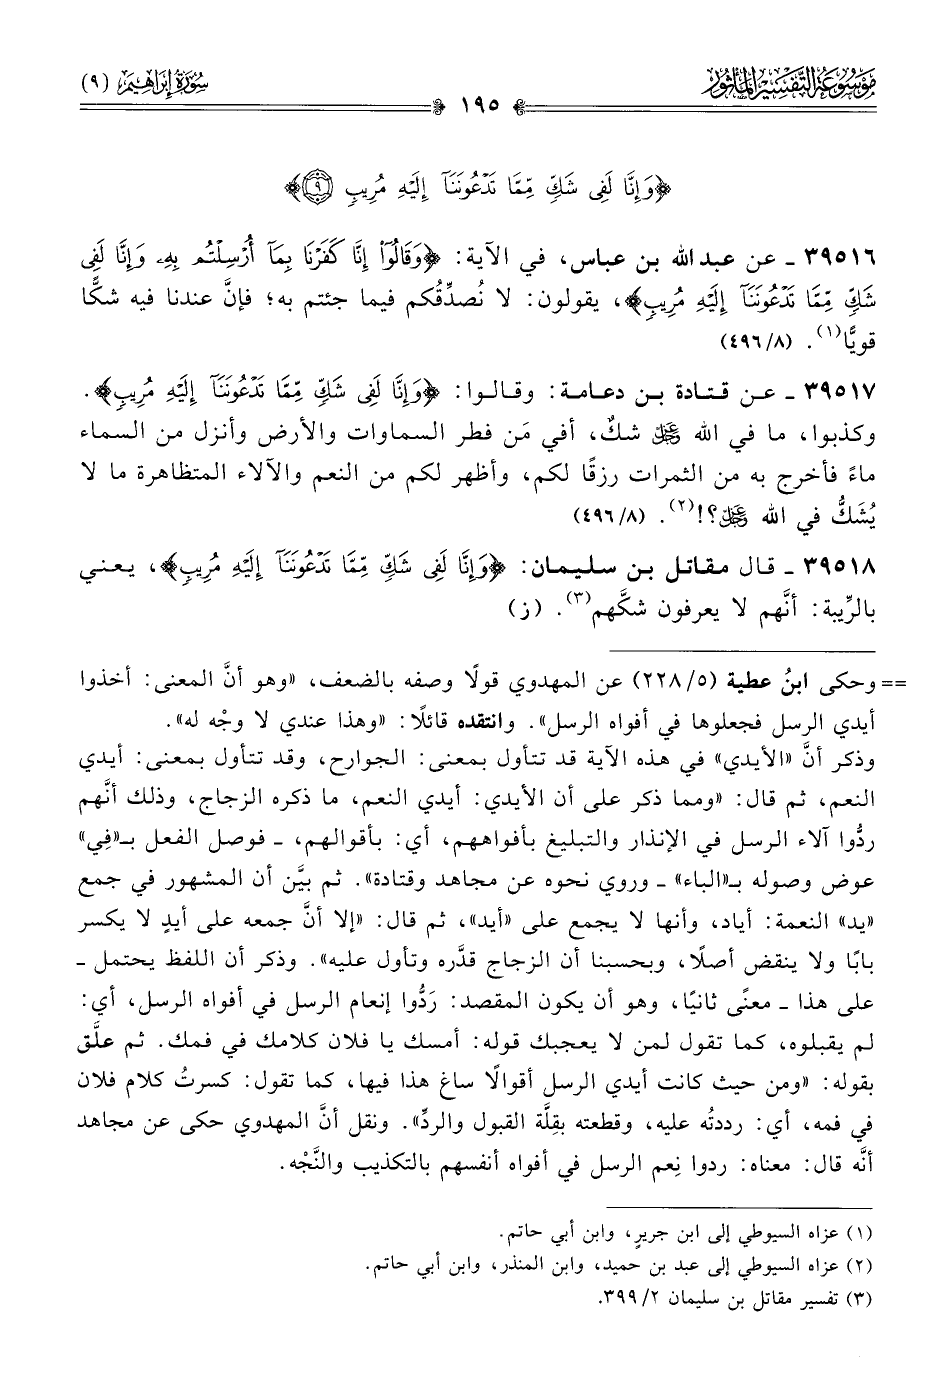 موسوعة التفسير المأثور
سورة إبراهيم (٩)
١٩٥
﴿وَإِنَّا لَفِي شَكٍّ مِّمَّا تَدْعُونَنَآ إِلَيْهِ مُرِيبٍ ۝٩﴾
٣٩٥١٦ ـ عن عبد الله بن عباس، في الآية: ﴿وَقَالُوٓاْ إِنَّا كَفَرْنَا بِمَآ أُرْسِلْتُم بِهِۦ وَإِنَّا لَفِي
شَكٍّ مِّمَّا تَدْعُونَنَآ إِلَيْهِ مُرِيبٍ﴾، يقولون: لا نُصدِّقُكم فيما جئتم به؛ فإنَّ عندنا فيه شكًّا
قويًّا(١). (٤٩٦/٨)
٣٩٥١٧ ـ عن قتادة بن دعامة: وقالوا: ﴿وَإِنَّا لَفِي شَكٍّ مِّمَّا تَدْعُونَنَآ إِلَيْهِ مُرِيبٍ﴾.
وكذبوا، ما في الله ﷿ شكٌ، أفي مَن فطر السماوات والأرض وأنزل من السماء
ماءً فأخرج به من الثمرات رزقًا لكم، وأظهر لكم من النعم والآلاء المتظاهرة ما لا
يُشَكُّ في الله ﷿؟!(٢). (٤٩٦/٨)
٣٩٥١٨ ـ قال مقاتل بن سليمان: ﴿وَإِنَّا لَفِي شَكٍّ مِّمَّا تَدْعُونَنَآ إِلَيْهِ مُرِيبٍ﴾، يعني
بالرِّيبة: أنَّهم لا يعرفون شكَّهم(٣). (ز)
== وحكى ابنُ عطية (٢٢٨/٥) عن المهدوي قولًا وصفه بالضعف، «وهو أنَّ المعنى: أخذوا
أيدي الرسل فجعلوها في أفواه الرسل». وانتقده قائلًا: «وهذا عندي لا وجْه له».
وذكر أنَّ «الأيدي» في هذه الآية قد تتأول بمعنى: الجوارح، وقد تتأول بمعنى: أيدي
النعم، ثم قال: «ومما ذكر على أن الأيدي: أيدي النعم، ما ذكره الزجاج، وذلك أنَّهم
ردُّوا آلاء الرسل في الإنذار والتبليغ بأفواههم، أي: بأقوالهم، ـ فوصل الفعل بـ«فِي»
عوض وصوله بـ«الباء» ـ وروي نحوه عن مجاهد وقتادة». ثم بيَّن أن المشهور في جمع
«يد» النعمة: أياد، وأنها لا يجمع على «أيد»، ثم قال: «إلا أنَّ جمعه على أيدٍ لا يكسر
بابًا ولا ينقض أصلًا، وبحسبنا أن الزجاج قدَّره وتأول عليه». وذكر أن اللفظ يحتمل ـ
على هذا ـ معنًى ثانيًا، وهو أن يكون المقصد: رَدُّوا إنعام الرسل في أفواه الرسل، أي:
لم يقبلوه، كما تقول لمن لا يعجبك قوله: أمسك يا فلان كلامك في فمك. ثم علَّق
بقوله: «ومن حيث كانت أيدي الرسل أقوالًا ساغ هذا فيها، كما تقول: كسرتُ كلام فلان
في فمه، أي: رددتُه عليه، وقطعته بقِلَّة القبول والردِّ». ونقل أنَّ المهدوي حكى عن مجاهد
أنَّه قال: معناه: ردوا نِعم الرسل في أفواه أنفسهم بالتكذيب والنَّجْه.
(١) عزاه السيوطي إلى ابن جريرٍ، وابن أبي حاتم.
(٢) عزاه السيوطي إلى عبد بن حميد، وابن المنذر، وابن أبي حاتم.
(٣) تفسير مقاتل بن سليمان ٣٩٩/٢.